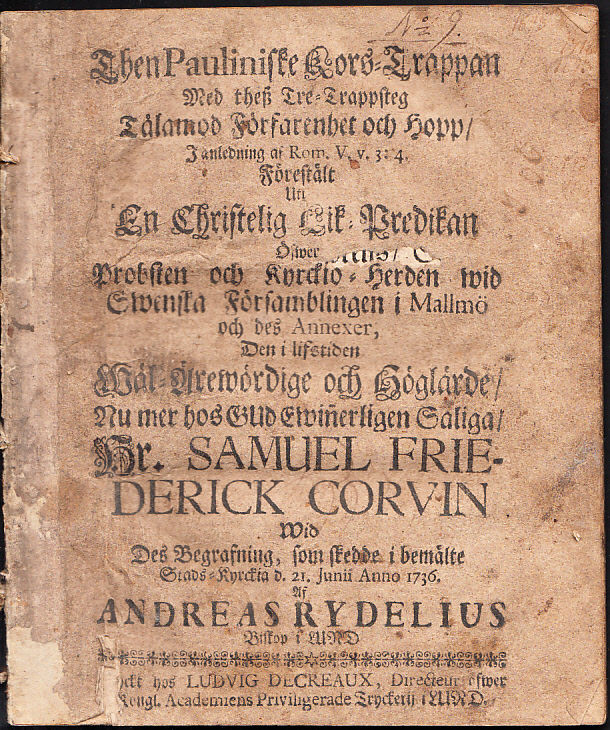 No 9.
Then Pauliniske Kors-Trappan
Med theß Tre-Trappsteg
Tålamod Förfarenhet och Hopp/
I anledning af Rom. V. v. 3: 4.
Förestält
Uti
En Christelig Lik-Predikan
Öfwer
Probsten och Kyrckio-Herden wid
Swenska Församblingen i Mallmö
och des Annexer,
Den i lifstiden
Wäl-Ärewördige och Höglärde/
Nu mer hos GUd Ewiñerligen Saliga/
Hr. SAMUEL FRIE-
DERICK CORVIN
Wid
Des Begrafning, som skedde i bemälte
Stads-Kyrckia d. 21. Junii Anno 1736.
Af
ANDREAS RYDELIUS
Biskop i LUND
hos LUDVIG DECREAUX, Directeur öfwer
Kongl. Academiens Priviligerade Tryckerij i LUND.